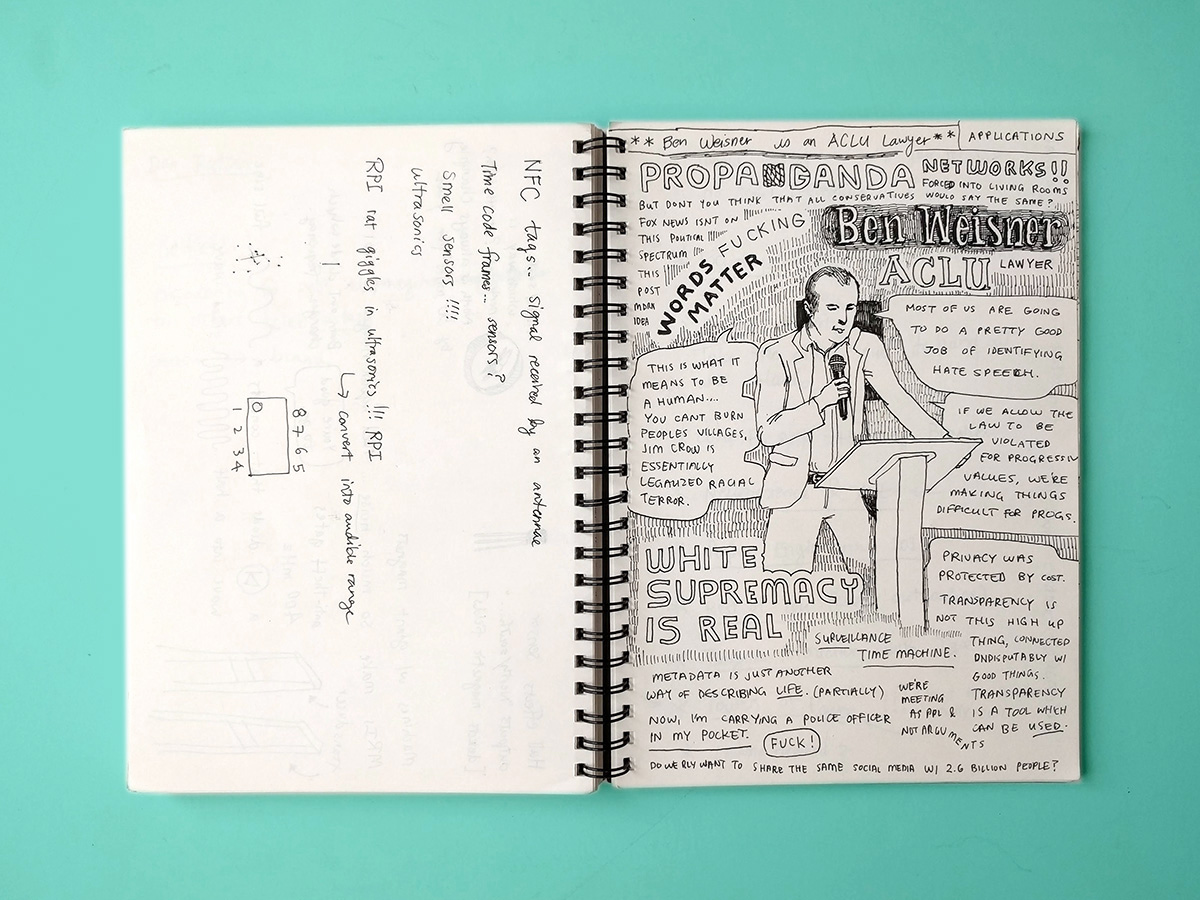 NFC tags... signal received by an antennae
Time code frames... sensors?
Smell sensors !!!!
ultrasonics
RPI rat giggles in ultrasonics !!! RPI
↳ convert into audible range
8 7 6 5
1 2 3 4
** Ben Weisner is an ACLU Lawyer **
APPLICATIONS
PROPAGANDA
NETWORKS!!
FORCED INTO LIVING ROOMS
BUT DONT YOU THINK THAT ALL CONSERVATIVES WOULD SAY THE SAME?
FOX NEWS ISNT ON
THIS POLITICAL
SPECTRUM
THIS
POST
IDEA
FUCKING
WORDS
MATTER
Ben Weisner
ACLU LAWYER
MOST OF US ARE GOING
TO DO A PRETTY GOOD
JOB OF IDENTIFYING
HATE SPEECH.
THIS IS WHAT IT
MEANS TO BE
A HUMAN....
YOU CANT BURN
PEOPLES VILLAGES,
JIM CROW IS
ESSENTIALLY
LEGALIZED RACIAL
TERROR.
IF WE ALLOW THE
LAW TO BE
VIOLATED
FOR PROGRESSIV
VALUES, WE'RE
MAKING THINGS
DIFFICULT FOR PROGS.
WHITE
SUPREMACY
IS REAL
PRIVACY WAS
PROTECTED BY COST.
TRANSPARENCY IS
NOT THIS HIGH UP
THING, CONNECTED
UNDISPUTABLY W/
GOOD THINGS.
TRANSPARENCY
IS A TOOL WHICH
CAN BE USED.
SURVEILLANCE
TIME MACHINE.
METADATA IS JUST ANOTHER
WAY OF DESCRIBING LIFE. (PARTIALLY)
NOW, I'M CARRYING A POLICE OFFICER
IN MY POCKET.
FUCK!
WE'RE
MEETING
AS PPL &
NOT ARGUMENTS
DO WE RLY WANT TO SHARE THE SAME SOCIAL MEDIA W/ 2.6 BILLION PEOPLE?